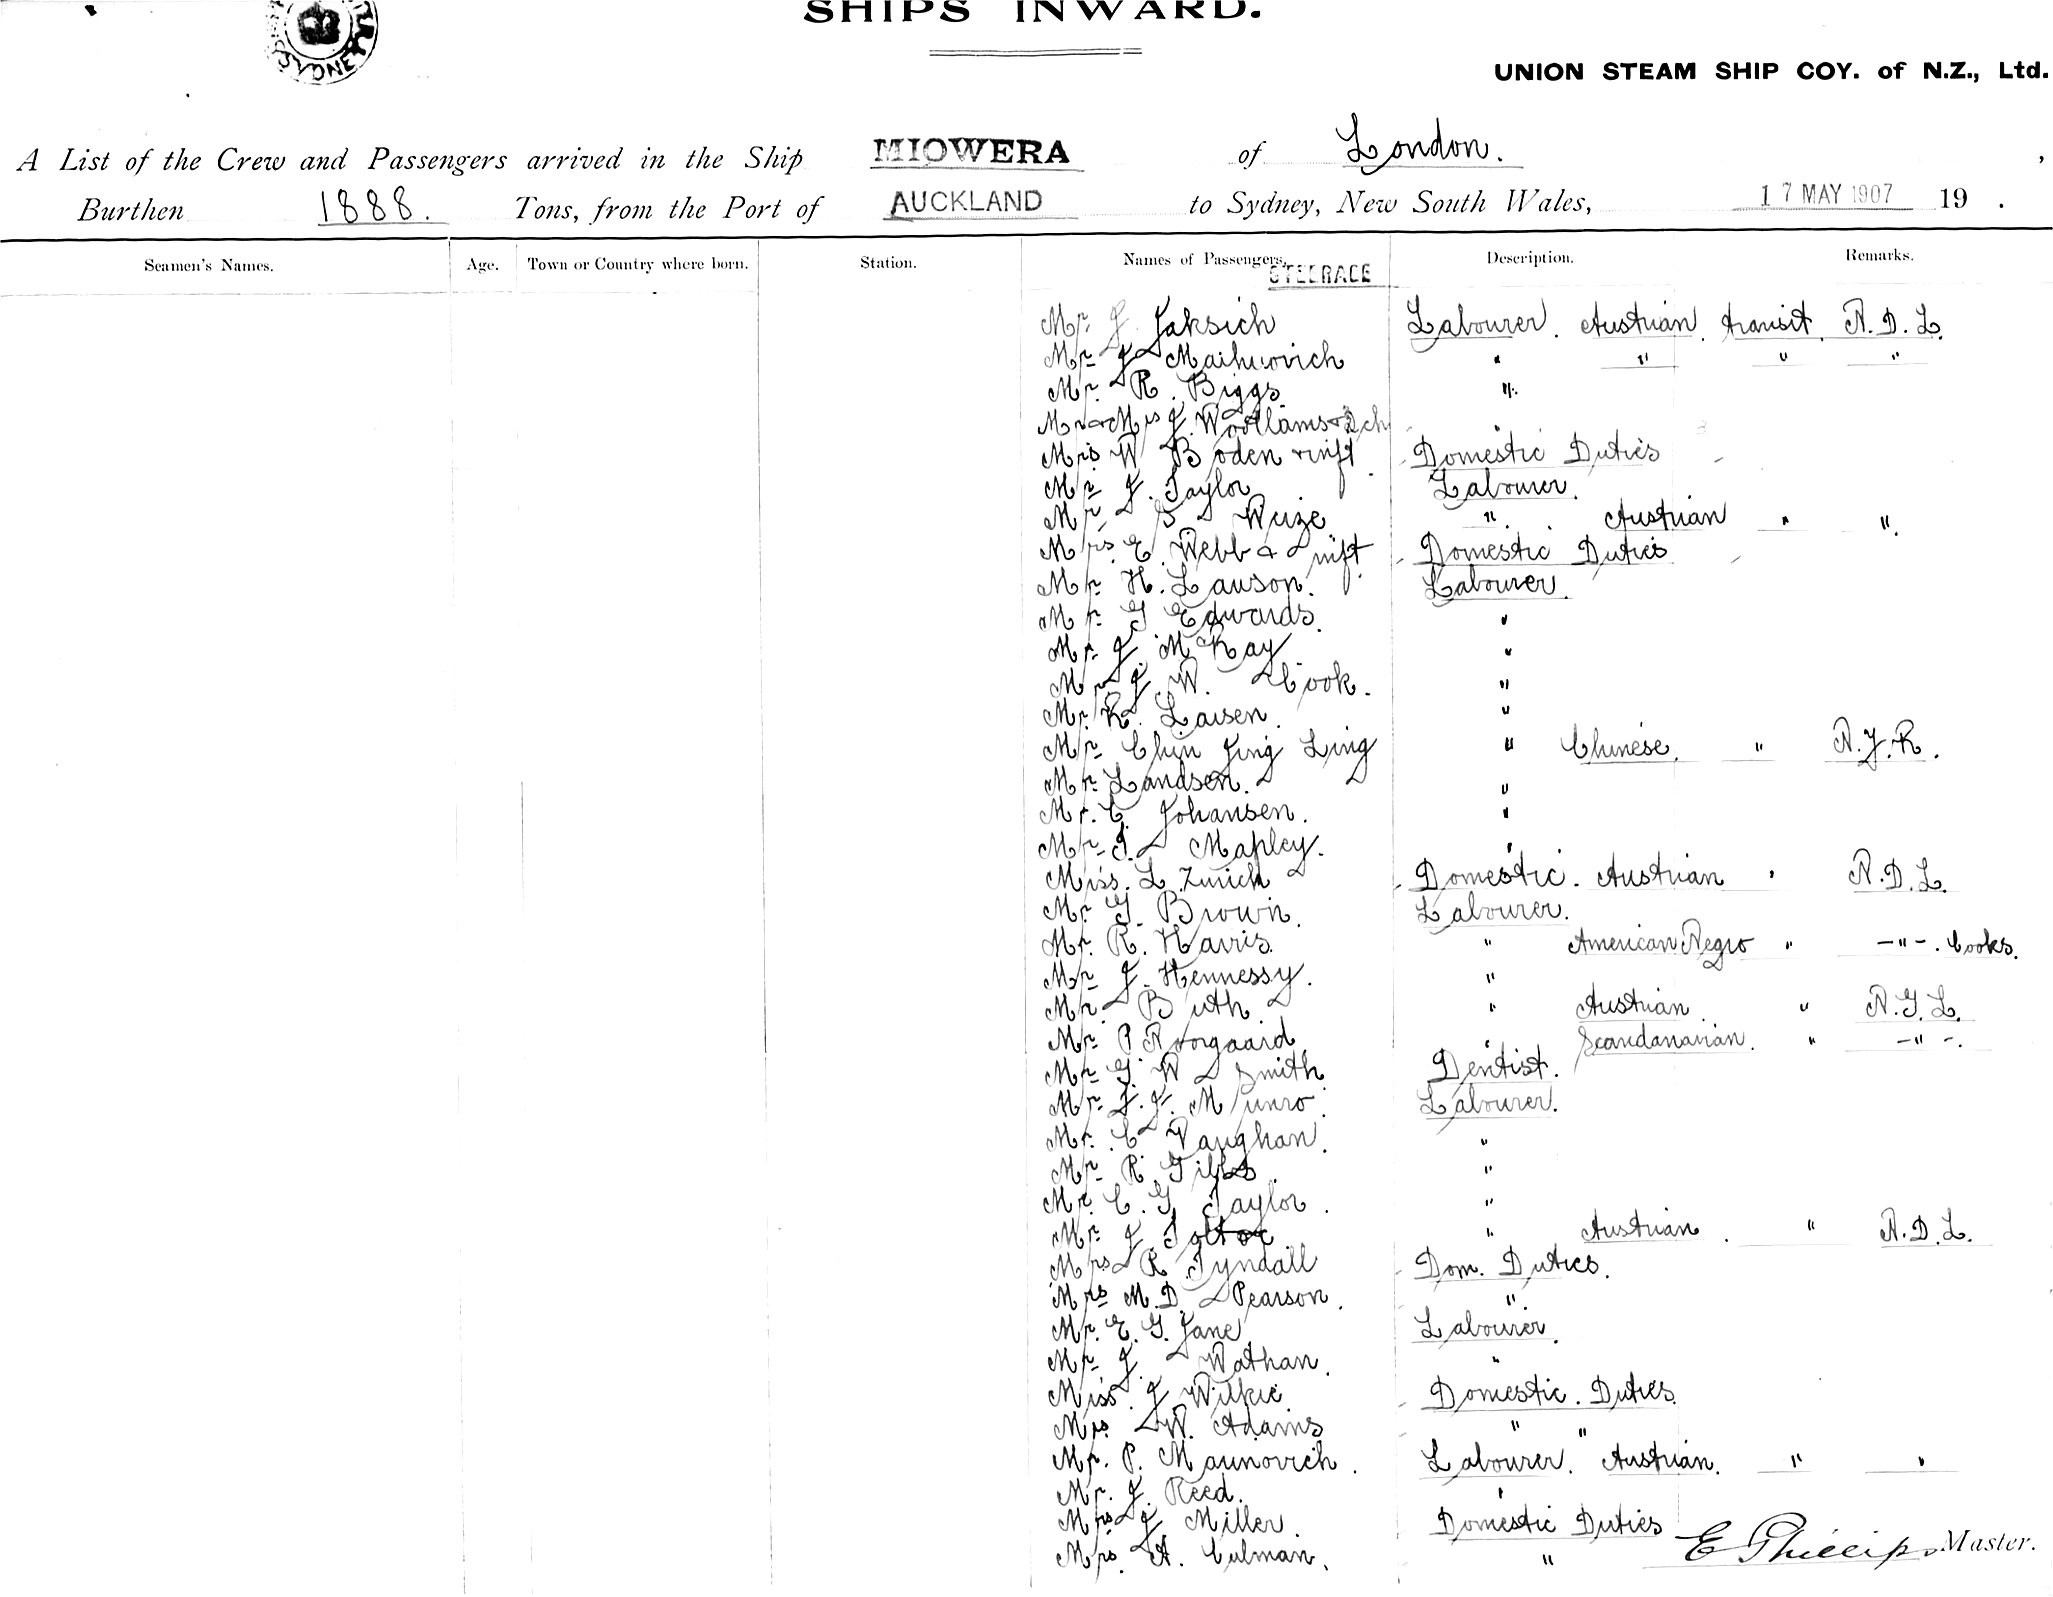 SHIPS INWARD.
UNION STEAM SHIP COY. of N.Z., Ltd.
A List of the Crew and Passengers arrived in the Ship MIOWERA of London.
Burthen 1888. Tons, from the Port of AUCKLAND to Sydney, New South Wales, 17 MAY 1907 19 .
Seamen's Names. Age. Town or Country where born. Station. Names of Passengers. Description. Remarks.
STEERAGE
Mr. J. Jaksich Labourer. Austrian. transit. N. D. L.
Mr J " " " "
Mr. R. Biggs. "
Mr & Mrs J. Woollams & 2 ch "
Mrs W Boden & inft Domestic Duties
Mr J. Taylor Labourer.
Mr S " Austrian " "
Mrs. E. Webb & inft. Domestic Duties
Mr. H. Lawson. Labourer.
Mr. G Edwards. "
Mr. J. McKay "
Mr J. W. Cook. "
Mr. K. Larsen. "
Mr Chin Jing Ling " Chinese. " N. Y. K.
Mr. Landsen. "
Mr. C. Johansen. "
Mr T. Mapley. "
Miss. L. Zurich Domestic. Austrian " N. D. L.
Mr. G. Brown. Labourer.
Mr. R. Harris. " American Negro " - " - . Cooks.
Mr J. Hennessy. "
Mr Buth. " Austrian " N. G. L.
Mr. P Norgaard " Scandanavian. " - " - .
Mr G. W Smith Dentist.
Mr. J. Munro. Labourer.
Mr. C Vaughan. "
Mr. R. "
Mr C. G. Taylor. "
Mr. J. " Austrian. " N. D. L.
Mrs R. Tyndall Dom. Duties.
Mrs M. D. Pearson. "
Mr. E. G. Jane Labourer.
Mr J. Wathan. "
Miss. J Wilkie Domestic. Duties.
Mrs. W. Adams " "
Mr. P. Marinovich. Labourer. Austrian. " "
Mr. J. Reed. "
Mrs J Miller. Domestic Duties
Mrs. A. Culman. "
E Phillips Master.